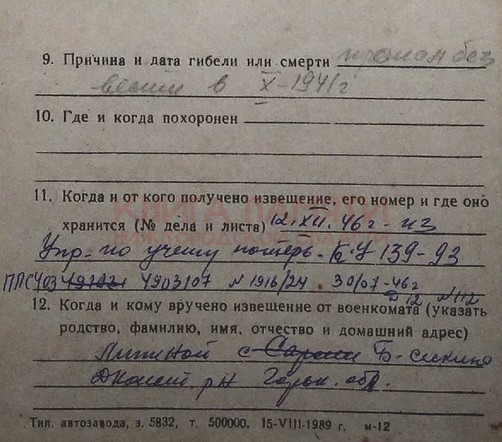 9. Причина и дата гибели или смерти пропал без
вести в X-1941г
10. Где и когда похоронен
11. Когда и от кого получено извещение, его номер и где оно
хранится (№ дела и листа) 12.XII.46г - из
Упр-по учету потерь. 139-93
4903107 N 1916/24. 30/07-46г
Д 12 №112
12. Когда и кому вручено извещение от военкомата (указать
родство, фамилию, имя, отчество и домашний адрес)
с
рн Горьк. обл.
Тип. автозавода, з. 5832, т. 500000, 15-VIII-1989 г. м-12